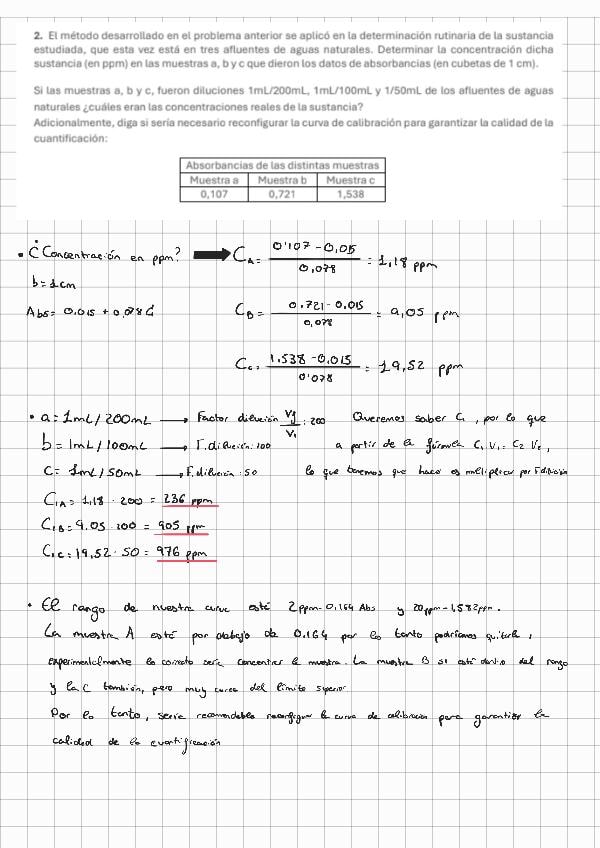 2. El método desarrollado en el problema anterior se aplicó en la determinación rutinaria de la sustancia
estudiada, que esta vez está en tres afluentes de aguas naturales. Determinar la concentración dicha
sustancia (en ppm) en las muestras a, b y c que dieron los datos de absorbancias (en cubetas de 1 cm).
Si las muestras a, b y c, fueron diluciones 1mL/200mL, 1mL/100mL y 1/50mL de los afluentes de aguas
naturales ¿cuáles eran las concentraciones reales de la sustancia?
Adicionalmente, diga si sería necesario reconfigurar la curva de calibración para garantizar la calidad de la
cuantificación:
Absorbancias de las distintas muestras
Muestra a Muestra b Muestra c
0,107 0,721 1,538
• ¿Concentración en ppm? ➡ CA = 0'107 - 0,015 / 0,078 = 1,18 ppm
b = 1cm
Abs = 0.015 + 0,078C CB = 0.721 - 0.015 / 0,078 = 9,05 ppm
Cc = 1.538 - 0.015 / 0'078 = 19,52 ppm
• a = 1mL / 200mL → Factor dilución Vf / Vi : 200 Queremos saber C1, por lo que
b = 1mL / 100mL → F. dilución: 100 a partir de la fórmula C1 V1 = C2 V2,
C = 1mL / 50mL → F. dilución: 50 lo que tenemos que hacer es multiplicar por F dilución
C1A = 1,18 · 200 = 236 ppm
C1B = 9.05 · 100 = 905 ppm
C1C = 19,52 · 50 = 976 ppm
• El rango de nuestra curva está 2ppm - 0,164 Abs y 20ppm - 1,582ppm.
La muestra A está por debajo de 0.164 por lo tanto podríamos quitarla,
experimentalmente lo correcto sería concentrar la muestra. La muestra B si está dentro del rango
y la C también, pero muy cerca del límite superior.
Por lo tanto, sería recomendable reconfigurar la curva de calibración para garantizar la
calidad de la cuantificación